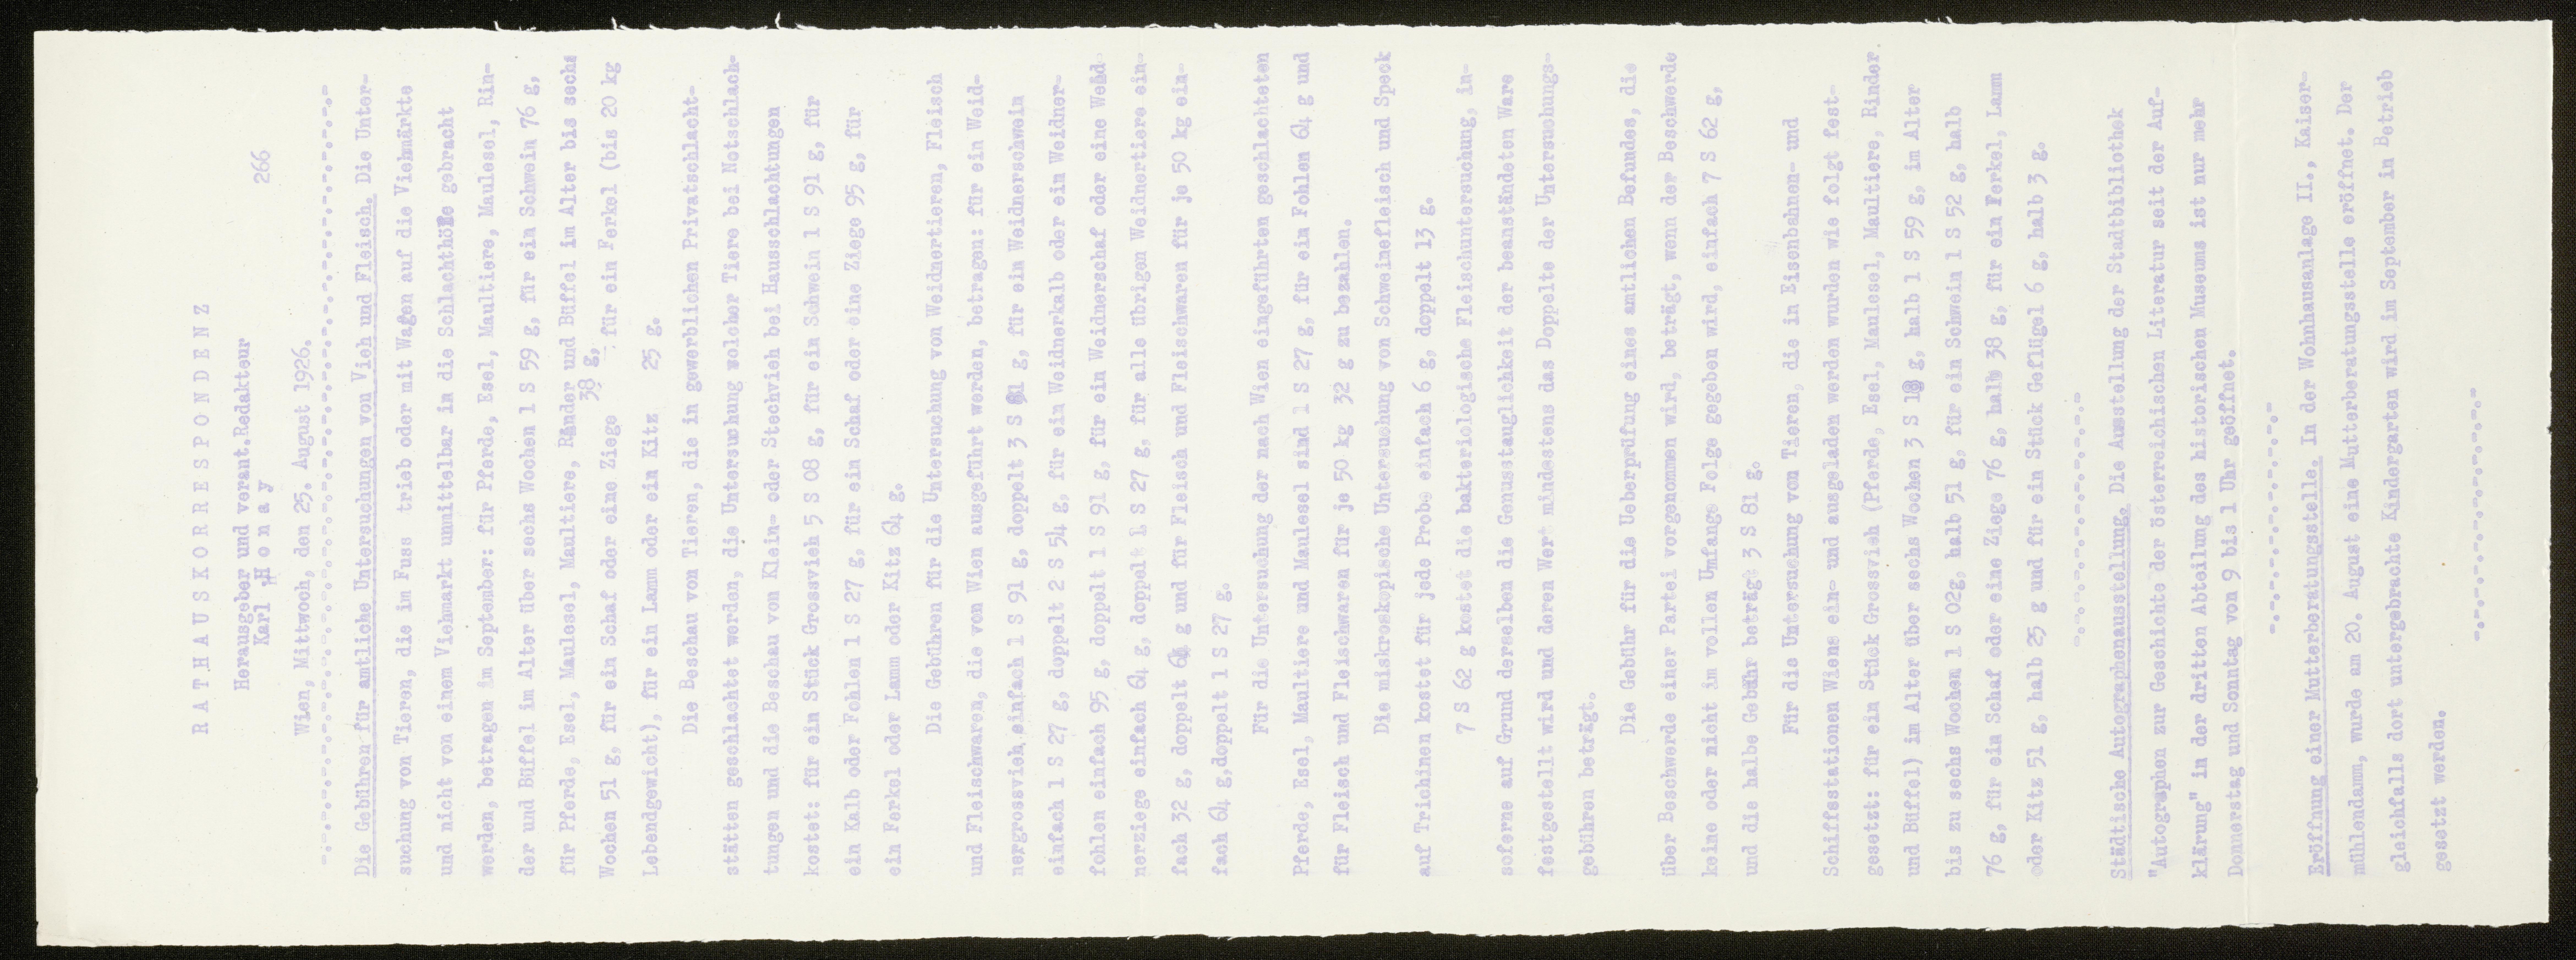 RATHAUSKORRESPONDENZ
Herausgeber und verant.Redakteur
266
Karl Honay
Wien, Mittwoch, den 25. August 1926.
-.-.-.-.-.-.-.-.-.-.-.-.-.-.-.-.-.-.-.-.-.-.-.-.-.-.-.-.-.-
Die Gebühren für amtliche Untersuchungen von Vieh und Fleisch. Die Unter-
suchung von Tieren, die im Fuss trieb oder mit Wagen auf die Viehmärkte
und nicht von einem Viehmarkt unmittelbar in die Schlachthöfe gebracht
werden, betragen im September: für Pferde, Esel, Maultiere, Maulesel, Rin-
der und Büffel im Alter über sechs Wochen 1 S 59 g, für ein Schwein 76 g,
für Pferde, Esel, Maulesel, Maultiere, Rinder und Büffel im Alter bis sechs
38 g,
Wochen 51 g, für ein Schaf oder eine Ziege für ein Ferkel (bis 20 kg
Lebendgewicht), für ein Lamm oder ein Kitz 25 g.
Die Beschau von Tieren, die in gewerblichen Privatschlacht-
stätten geschlachtet werden, die Untersuchung solcher Tiere bei Notschlach-
tungen und die Beschau von Klein- oder Stechvieh bei Hausschlachtungen
kostet: für ein Stück Grossvieh 5 S 08 g, für ein Schwein 1 S 91 g, für
ein Kalb oder Fohlen 1 S 27 g, für ein Schaf oder eine Ziege 95 g, für
ein Ferkel oder Lamm oder Kitz 64 g.
Die Gebühren für die Untersuchung von Weidnertieren, Fleisch
und Fleischwaren, die von Wien ausgeführt werden, betragen: für ein Weid-
nergrossvieh einfach 1 S 91 g, doppelt 3 S 81 g, für ein Weidnerschwein
einfach 1 S 27 g, doppelt 2 S 54 g, für ein Weidnerkalb oder ein Weidner-
fohlen einfach 95 g, doppelt 1 S 91 g, für ein Weidnerschaf oder eine Weid
nerziege einfach 64 g, doppelt 1 S 27 g, für alle übrigen Weidnertiere ein-
fach 32 g, doppelt 64 g und für Fleisch und Fleischwaren für je 50 kg ein-
fach 64 g,doppelt 1 S 27 g.
Für die Untersuchung der nach Wien eingeführten geschlachteten
Pferde, Esel, Maultiere und Maulesel sind 1 S 27 g, für ein Fohlen 64 g und
für Fleisch und Fleischwaren für je 50 kg 32 g zu bezahlen.
Die miskroskopische Untersuchung von Schweinefleisch und Speck
auf Trichinen kostet für jede Probe einfach 6 g, doppelt 13 g.
7 S 62 g kostet die bakteriologische Fleischuntersuchung, in-
soferne auf Grund derselben die Genusstauglichkeit der beanständeten Ware
festgestellt wird und deren Wert mindestens das Doppelte der Untersuchungs-
gebühren beträgt.
Die Gebühr für die Ueberprüfung eines amtlichen Befundes, die
über Beschwerde einer Partei vorgenommen wird, beträgt, wenn der Beschwerde
keine oder nicht im vollen Umfange Folge gegeben wird, einfach 7 S 62 g,
und die halbe Gebühr beträgt 3 S 81 g.
Für die Untersuchung von Tieren, die in Eisenbahnen- und
Schiffsstationen Wiens ein- und ausgeladen werden wurden wie folgt fest-
gesetzt: für ein Stück Grossvieh (Pferde, Esel, Maulesel, Maultiere, Rinder
und Büffel) im Alter über sechs Wochen 3 S 18 g, halb 1 S 59 g, im Alter
bis zu sechs Wochen 1 S 02g, halb 51 g, für ein Schwein 1 S 52 g, halb
76 g, für ein Schaf oder eine Ziege 76 g, halb 38 g, für ein Ferkel, Lamm
oder Kitz 51 g, halb 25 g und für ein Stück Geflügel 6 g, halb 3 g.
-.-.-.-.-.-.-.-.-.-.-
Städtische Autographenausstellung. Die Ausstellung der Stadtbibliothek
"Autographen zur Geschichte der österreichischen Literatur seit der Auf-
klärung" in der dritten Abteilung des historischen Museums ist nur mehr
Donnerstag und Sonntag von 9 bis 1 Uhr geöffnet.
-.-.-.-.-.-.-.-.-.
Eröffnung einer Mutterberatungsstelle. In der Wohnhausanlage II., Kaiser-
mühlendamm, wurde am 20. August eine Mutterberatungsstelle eröffnet. Der
gleichfalls dort untergebrachte Kindergarten wird im September in Betrieb
gesetzt werden.
-.-.-.-.-.-.-.-.-.-.-